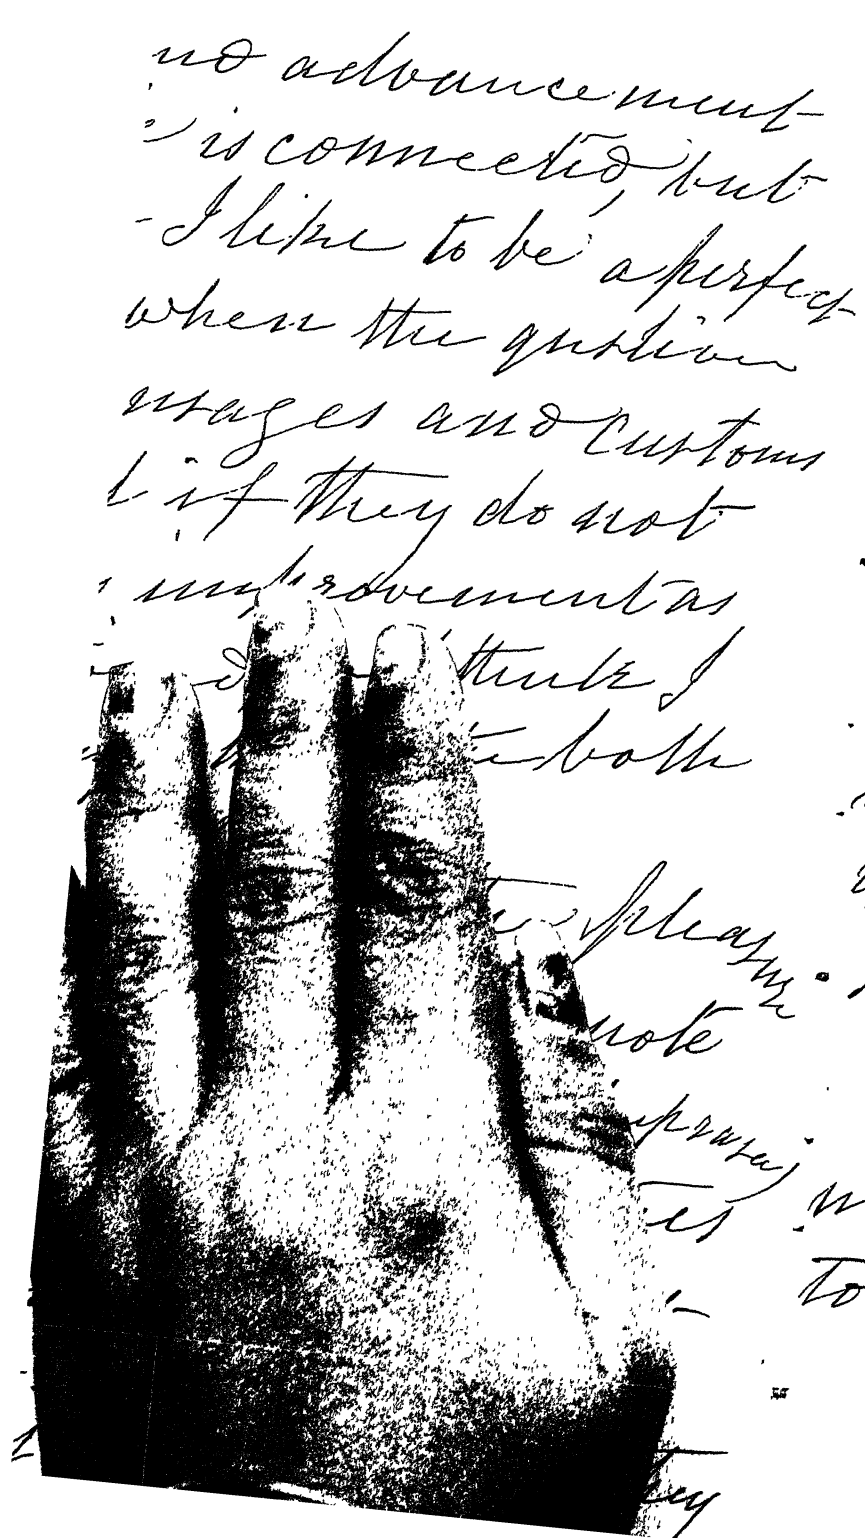 no advancement
is connected, but
I like to be a perfect
when the qustion
usages and customs
if they do not
improvement as
think I
both
pleasure
note
to